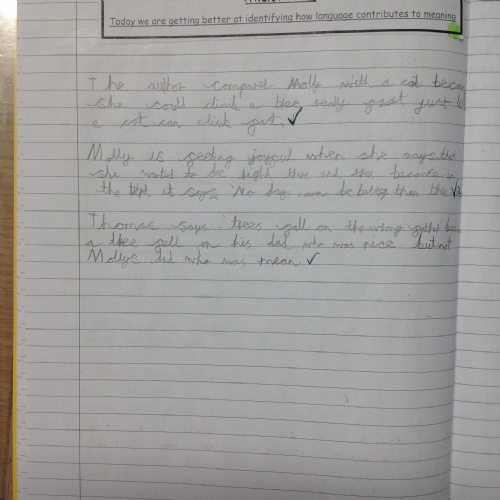 Today we are getting better at identifying how language contributes to meaning
The author compared Molly with a cat becau
she could climb a tree really fast just li
a cat can climb fast.
Molly is feeling joyful when she says that
she wanted to die right there and then because in
the text it says 'No day can be better than this
Thomas says trees fall on the wrong
a tree fell on his dad who was nice but not
Mollys dad who was mean